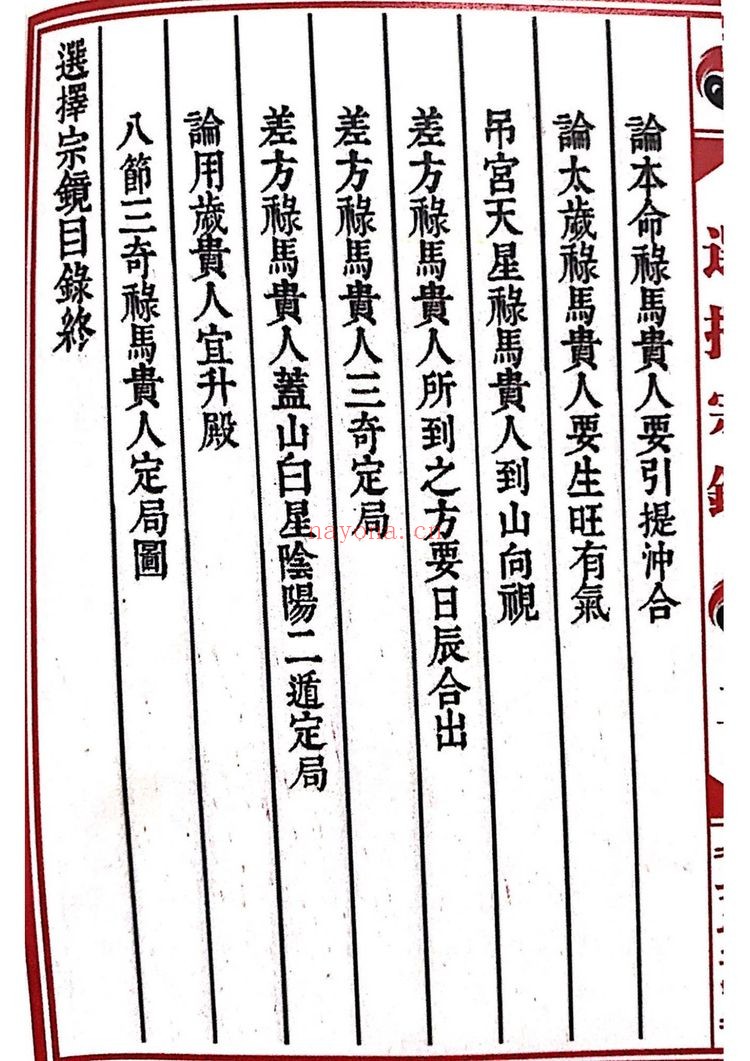 論本命祿馬貴人要引提沖合
論太歲祿馬貴人要生旺有氣
吊宮天星祿馬貴人到山向視
差方祿馬貴人所到之方要日辰合出
差方祿馬貴人三奇定局
差方祿馬貴人蓋山白星陰陽二遁定局
論用歲貴人宜升殿
八節三奇祿馬貴人定局圖
選擇宗鏡目錄終
nayona.cn